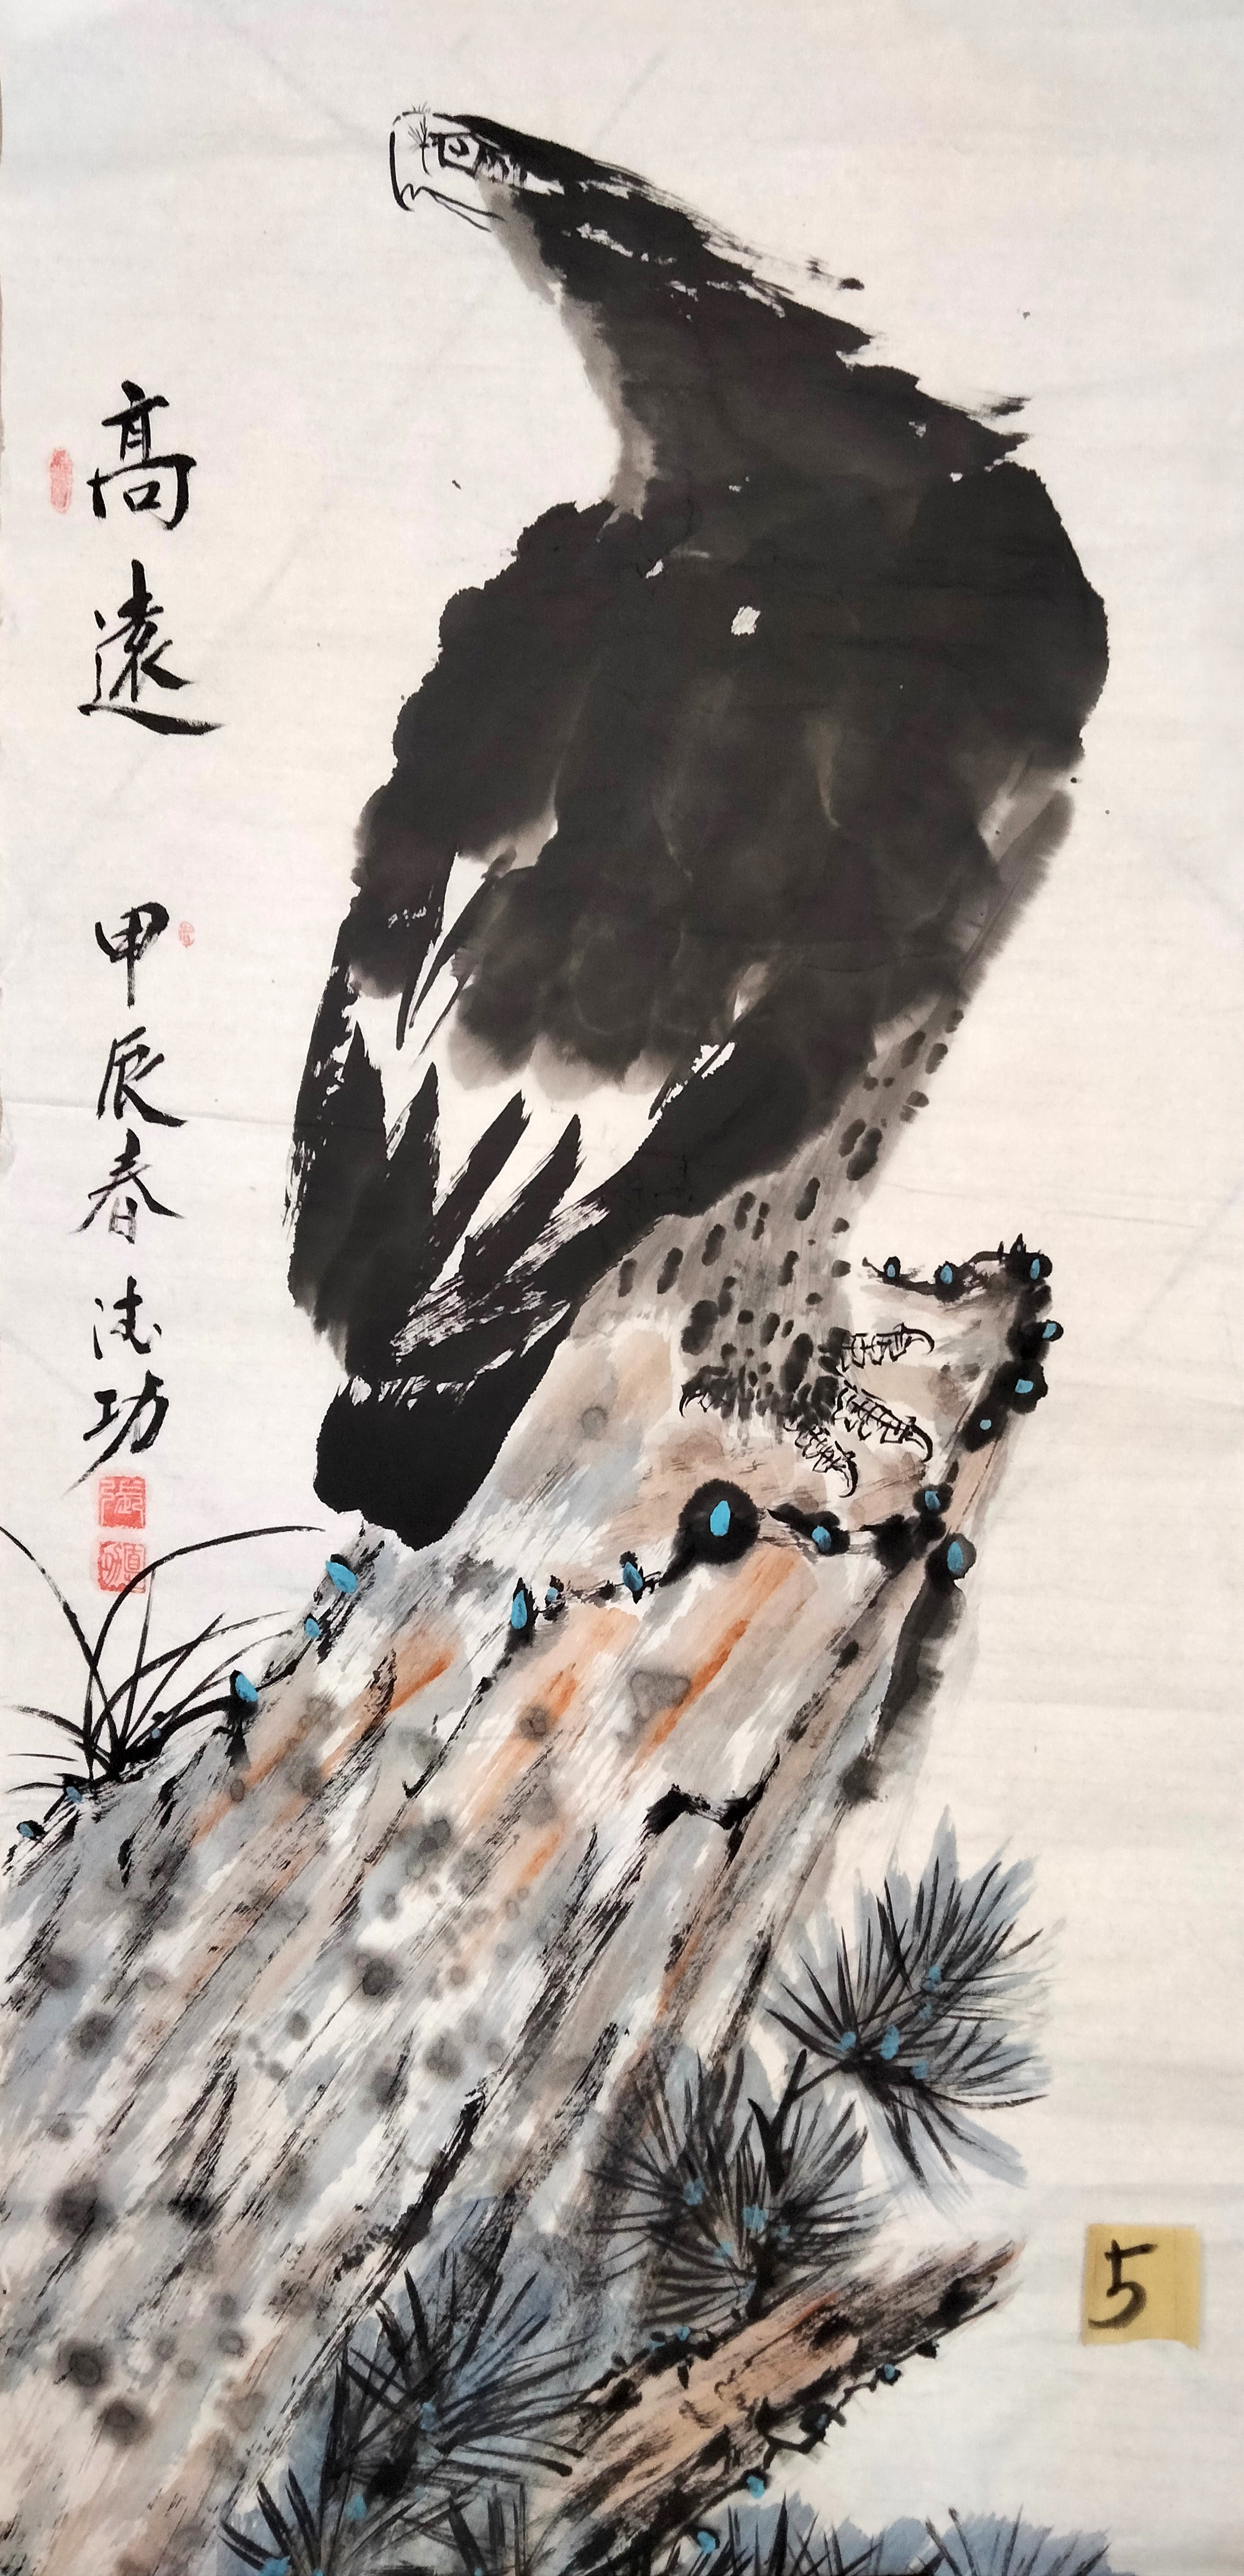 高遠
甲辰春
功
5